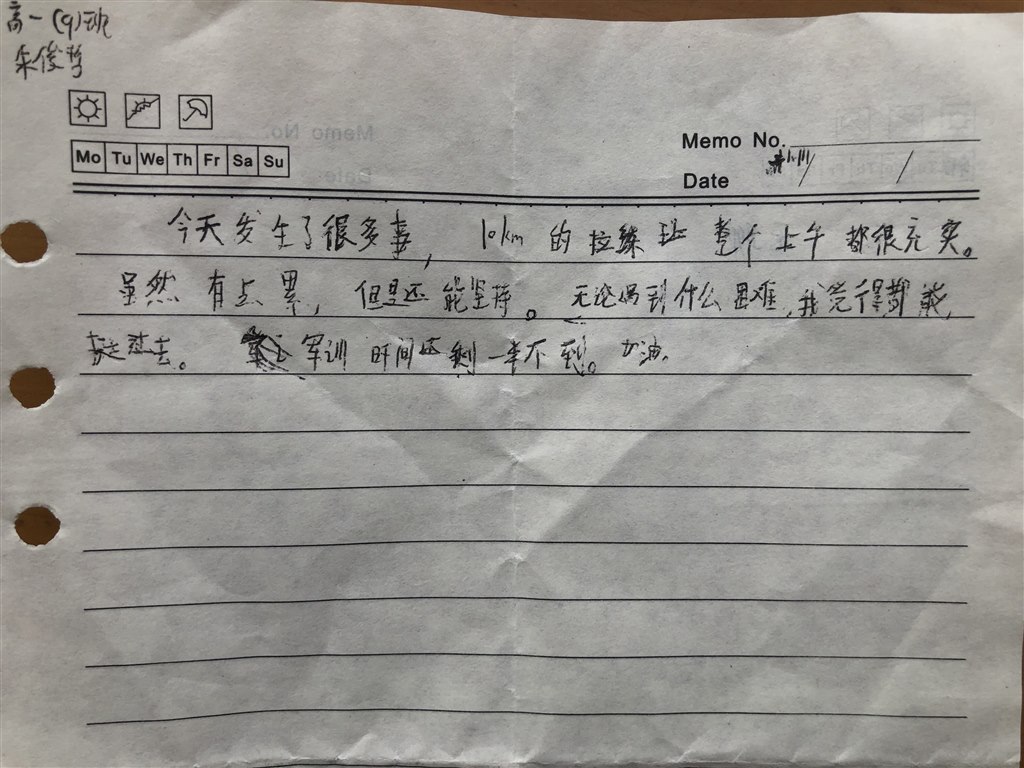 高一(9)班
朱俊哲
Memo No.
Mo Tu We Th Fr Sa Su
Date / /
今天发生了很多事, 10km 的拉练 整个上午都很充实。
虽然有点累, 但是还能坚持。无论遇到什么困难,我觉得都能
挺过去。 军训时间还剩一半不到。加油.